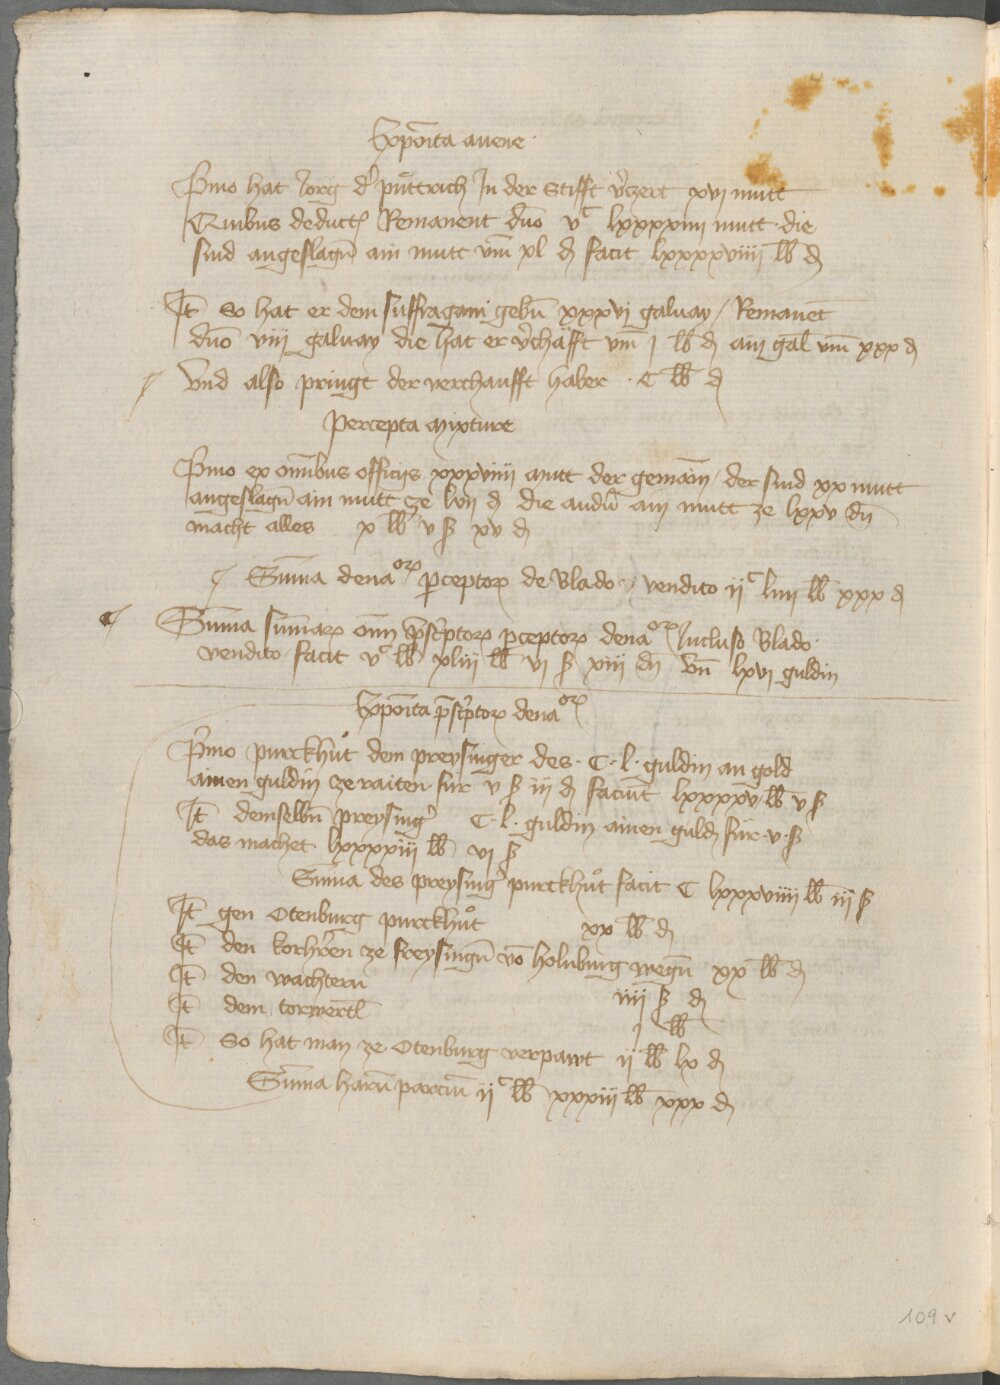 Expoīta avene
Pͥmo hat Jorg dʼ pu̎ttrich In der Stifft vʼczert xvi mutt
Quibus deductꝭ Remanent dn̄o vᶜ lxxxxiiii mutt · die
sind angeslagn̄ ain mutt vm̄ xl ₰ facit lxxxxviiii lb ₰
It̄ So hat er dem suffragani gebn̄ xxxvi galuay / Remanēt
dn̄o viii galuay die hat er vʼchäfft vm̄ j lb ₰ ain gal̄ vm̄ xxx ₰
Vnd also pringt der verchaufft haber · C lb ₰
Percepta mixture
Pͥmo ex om̄ibus officijs xxxviiii mutt der gemaīn / der sind xx mutt
angeslagn̄ ain mutt ze lvii ₰ die andn̄ ain mutt ze lxxv dn̄
macht alles x lb v ß xv ₰
Sūma denaᵒʳꝝ ꝑceptoꝝ de Blado vendito ijᶜ liiii lb xxx ₰
Sūma sūmaꝝ om̄ p̄scʼptoꝝ ꝑceptoꝝ denaᵒʳꝝ Incluso Blado
vendito facit vᶜ lb xliii lb vi ß xiii dn̄ vn̄ lxvi guldin
Expoīta p̄scʼptoꝝ denaᵒʳꝝ
Pͥmo purckhůt dem preysinger des · C · l · guldin an gold
ainen guldin ze raiten für v ß iij ₰ faciūt lxxxxv lb v ß
It̄ demselbn̄ preysingʼ C · l · guldin ainen guld̄ für · v · ß
das machet lxxxxiii lb vi ß
Sūma des preysingʼ purckhůt facit C lxxxviiii lb iij ß
It̄ gen Otenburg purckhůt xx lb ₰
It̄ den korhʼren ze freysingn̄ vō holnburg wegn̄ xx lb ₰
It̄ den wachtern iiii ß ₰
It̄ dem torwertl̄ j lb
It̄ So hat man ze Otenburg verpawt ij lb lx ₰
Sūma harū parciū ijᶜ lb xxxiii lb xxx ₰
109 v